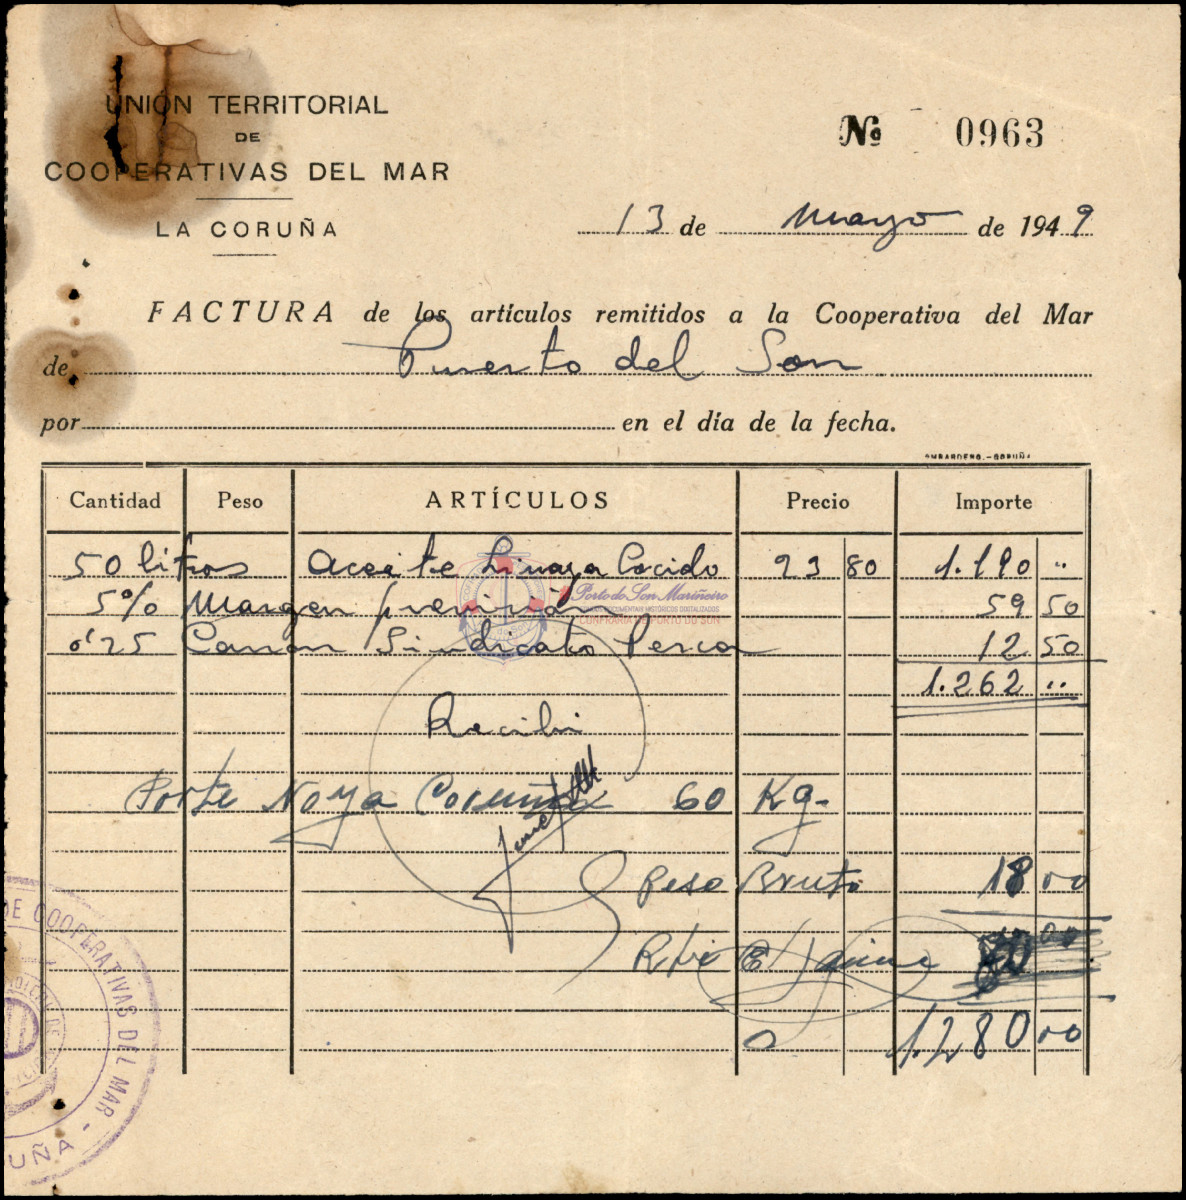 UNIÓN TERRITORIAL
DE
COOPERATIVAS DEL MAR
LA CORUÑA
Nº 0963
13 de Mayo de 1949
FACTURA de los artículos remitidos a la Cooperativa del Mar
de Puerto del Son
por en el día de la fecha.
OMBARDERO.-CORUÑA
Cantidad Peso ARTÍCULOS Precio Importe
50 litros Aceite Linaza Cocido 23 80 1.190 ..
5% Margen previsión 59 50
0'25 Canon Sindicato Pesca 12 50
1.262 ..
Porto do Son Mariñeiro
CONFRARÍA DE PORTO DO SON
Recibí
Porte Noya Coruña 60 Kg.
Peso Bruto 18 00
1.280 00
DE COOPERATIVAS DEL MAR -
UÑA